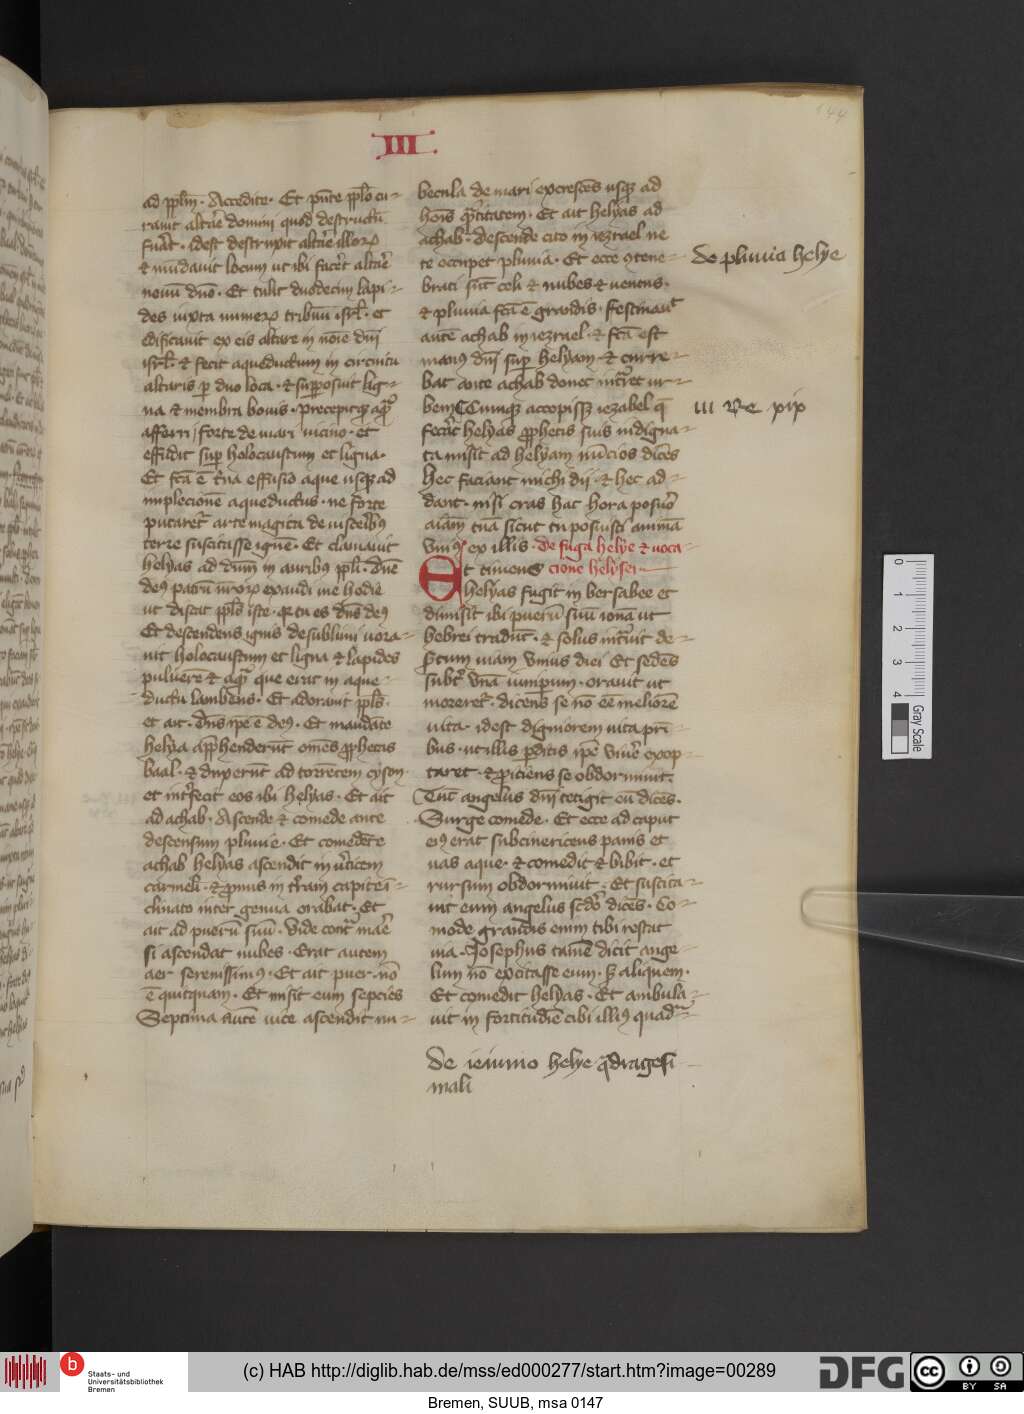 144
III
ad pplm. Accedite. Et pnte pplo cu-
rauit altare domini quod destructu
fuat. idest destruxit altare illorum
et mundauit locum ut ibi facet altare
nouu dno. Et tulit duodecim lapi-
des iuxta numerum tribuu isrl. et
edificauit ex eis altare in noie dni
isrl. et fecit aqueductum in circuitu
altaris p duo loca. et supposuit lig-
na et membra bouis. precepitque aqua
afferri forte de mari uicino. et
effudit sup holocaustum et ligna.
Et fca e trna effusio aque usque ad
implecione aqueductus. ne forte
putaret arte magica de uisceribus
terre suscitasse igne. Et clamauit
helyas ad dnm in auribus ppli. dne
deus patru nrorum exaudi me hodie
ut discat ppls iste. qr tu es dns deus
Et descendens ignis de sublimi uora-
uit holocaustum et ligna et lapides
puluere et aqua que erat in aque-
ductu lambens. Et adorauit ppls.
et ait. dns ipe e deus. Et mandate
helya apphenderut omes pphetas
baal. et duxerut ad torrecem cyson
et intfecit eos ibi helyas. Et ait
ad achab. Ascende et comede ante
descensum pluuie. Et comedete
achab helyas ascendit in uticem
carmeli. et pnus in tram capite i-
clinato inter genua orabat. Et
ait ad pueru suu. Vide cont mare
si ascendat nubes. Erat autem
aer serenissimus. Et ait puer no
e quitquam. Et misit eum sepcies
Septima aute uice ascendit nu-
becula de mari excrescens usque ad
hois quatitatem. Et ait helyas ad
achab. descende cito in iezrael ne
te occupet pluuia. Et ecce 9tene-
brati sut celi et nubes et uentus.
et pluuia fca e grandis. festinauit
aute achab in iezrael. et fca est
manus dni sup helyam et curre-
bat ante achab donec intret ur-
bem Cumque accepisset iezabel que
fecat helyas pphetis suis indigna-
ta misit ad helyam nucios dices
Hec faciant michi dii et hec ad-
dant. nisi cras hac hora posuero
aiam tua sicut tu posuisti animam
Vnius ex illis. de fuga helye et uoca-
Et timens cione helysei
helyas fugit in bersabee et
dimisit ibi pueru suu iona ut
hebrei tradut. et solus intuit de-
sertum uiam vnius diei Et sedens
subt vna iuniperum. orauit ut
moreret. dicens se no ee meliore
uita. idest digniorem uita pri-
bus. ut illis pditis ipe viue exop-
taret. et piciens se obdormiuit
Tuc angelus dni tetigit eu dices.
Surge comede. Et ecce ad caput
eius erat subcinericeus panis et
uas aque. et comedit et bibit. et
rursum obdormiuit. Et suscita-
uit eum angelus scdo dices. Co-
mede grandis enim tibi restat
uia. Iosephus tamen dicit ange-
lum no excitasse eum. sed aliquem.
Et comedit helyas. Et ambula-
uit in fortitudie cibi illius quadra-
de pluuia helye
III Re xix
de ieiunio helye qdragesi-
mali
0 1 2 3 4
Gray Scale
b Staats- und
Universitätsbibliothek
Bremen
(c) HAB http://diglib.hab.de/mss/ed000277/start.htm?image=00289
DFG
cc BY SA
Bremen, SUUB, msa 0147